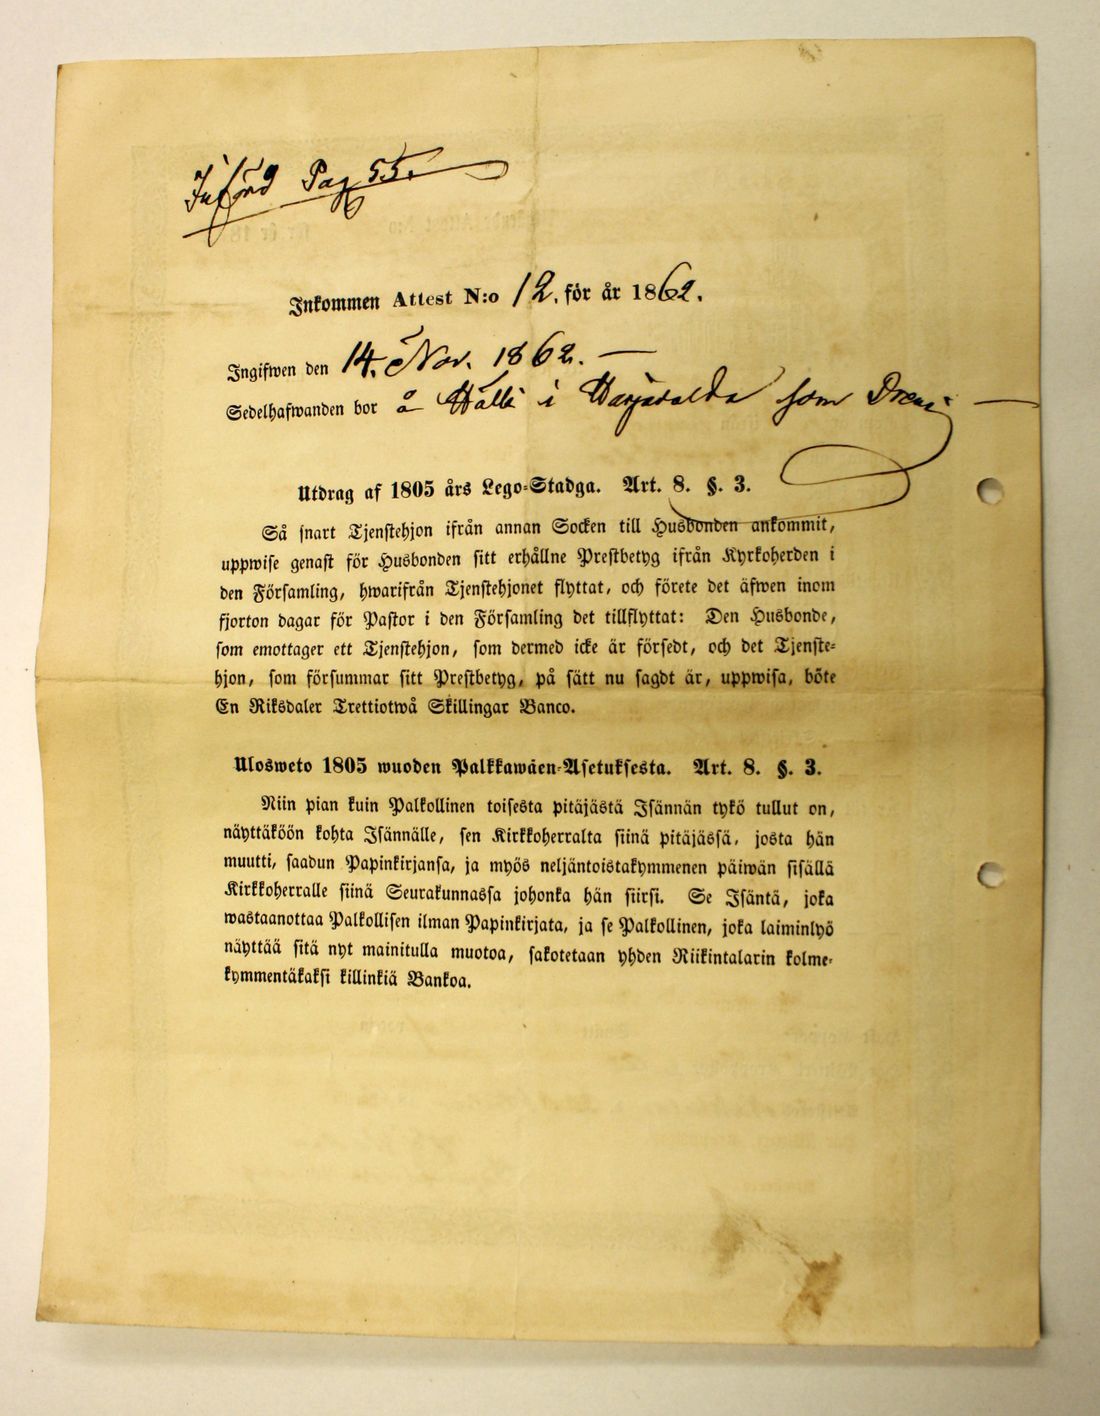 Införd Pag 55.
Inkommen Attest N:o 12. för år 1862.
Ingifwen den 14. Nov. 1862. —
Sedelhafwanden bor å Hälli i Harjadalda som Dreng —
Utdrag af 1805 års Lego-Stadga. Art. 8. §. 3.
Så snart Tjenstehjon ifrån annan Socken till Husbonden ankommit,
uppwise genast för Husbonden sitt erhållne Prestbetyg ifrån Kyrkoherden i
den Församling, hwarifrån Tjenstehjonet flyttat, och förete det äfwen inom
fjorton dagar för Pastor i den Församling det tillflyttat: Den Husbonde,
som emottager ett Tjenstehjon, som dermed icke är försedt, och det Tjenste-
hjon, som försummar sitt Prestbetyg, på sätt nu sagdt är, uppwisa, böte
En Riksdaler Trettiotwå Skillingar Banco.
Ulosweto 1805 wuoden Palkkawäen-Asetuksesta. Art. 8. §. 3.
Niin pian kuin Palkollinen toisesta pitäjästä Isännän tykö tullut on,
näyttäköön kohta Isännälle, sen Kirkkoherralta siinä pitäjässä, josta hän
muutti, saadun Papinkirjansa, ja myös neljäntoistakymmenen päiwän sisällä
Kirkkoherralle siinä Seurakunnassa johonka hän siirsi. Se Isäntä, joka
wastaanottaa Palkollisen ilman Papinkirjata, ja se Palkollinen, joka laiminlyö
näyttää sitä nyt mainitulla muotoa, sakotetaan yhden Riikintalarin kolme-
kymmentäkaksi killinkiä Bankoa.